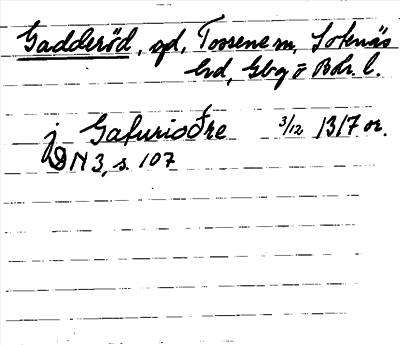 Gadderöd, gd, Tossene sn, Sotenäs
hd, Gbg o Boh. l.
j Gafuriodre 3/12 1317 or.
DN 3, s. 107